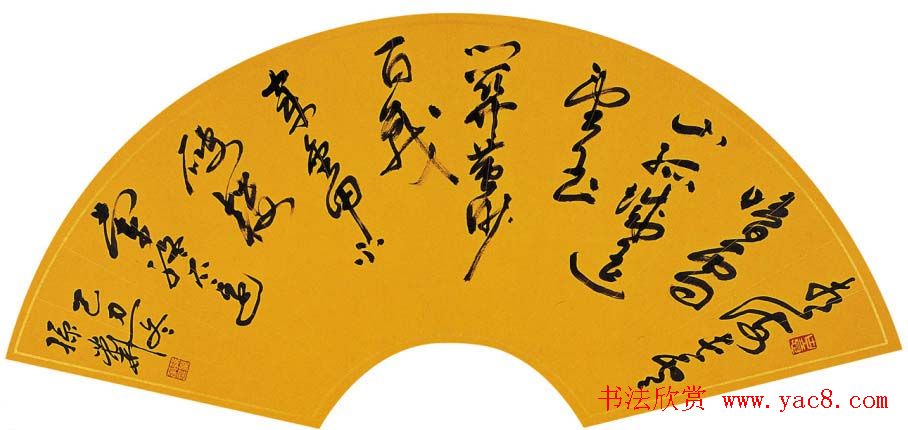 青海长云
暗雪
山孤城遥
望玉
门关黄沙
百战
穿金甲不
破楼
兰终不还
己丑冬
书法欣赏 www.yac8.com